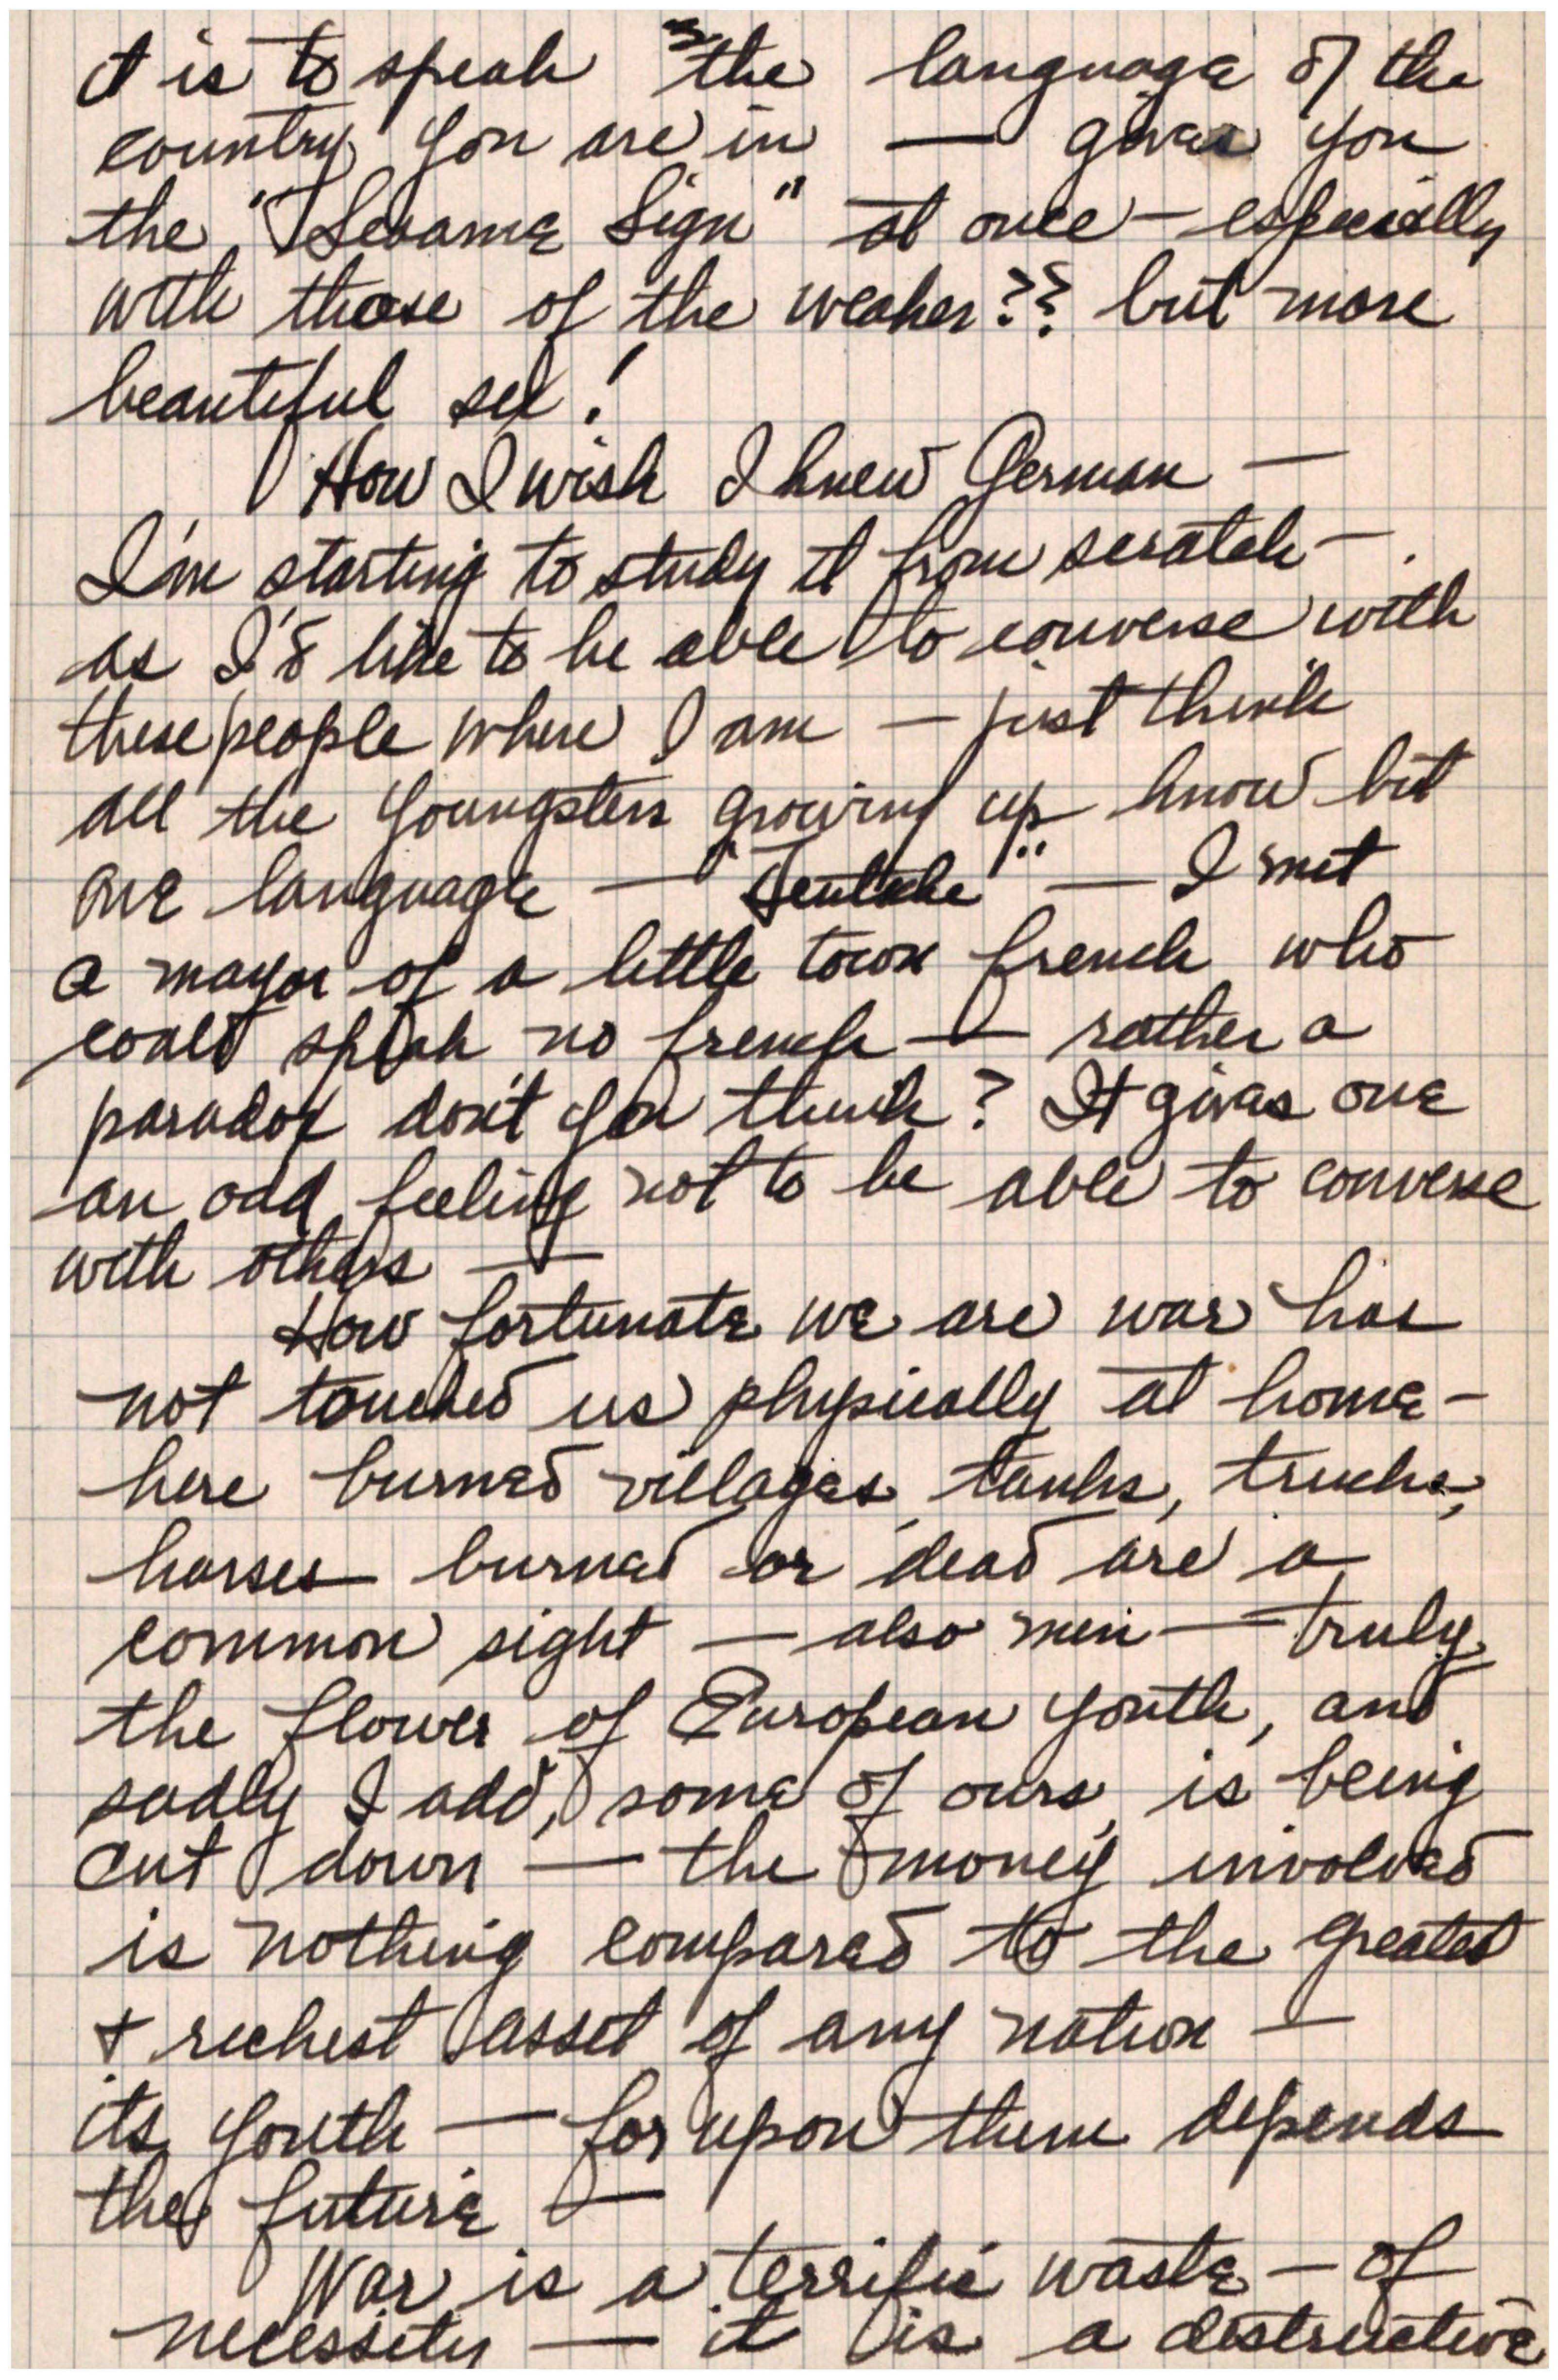 it is to speak the language of the
country you are in — gives you
the "Sesame Sign" at once — especially
with those of the weaker?? but more
beautiful sex!
How I wish I knew German —
I'm starting to study it from scratch —
as I'd like to be able to converse with
these people where I am — just think
all the youngsters growing up know but
one language — "Deutsche" — I met
a mayor of a little town french who
could speak no french — rather a
paradox don't you think? It gives one
an odd feeling not to be able to converse
with others —
How fortunate we are war has
not touched us physically at home —
here burned villages, tanks, trucks,
horses burned or dead are a
common sight — also men — truly
the flower of European youth, and
sadly I add, some of ours, is being
cut down — the money involved
is nothing compared to the greatest
+ richest asset of any nation —
its youth — for upon them depends
the future —
War is a terrific waste — of
necessity — it is a destructive